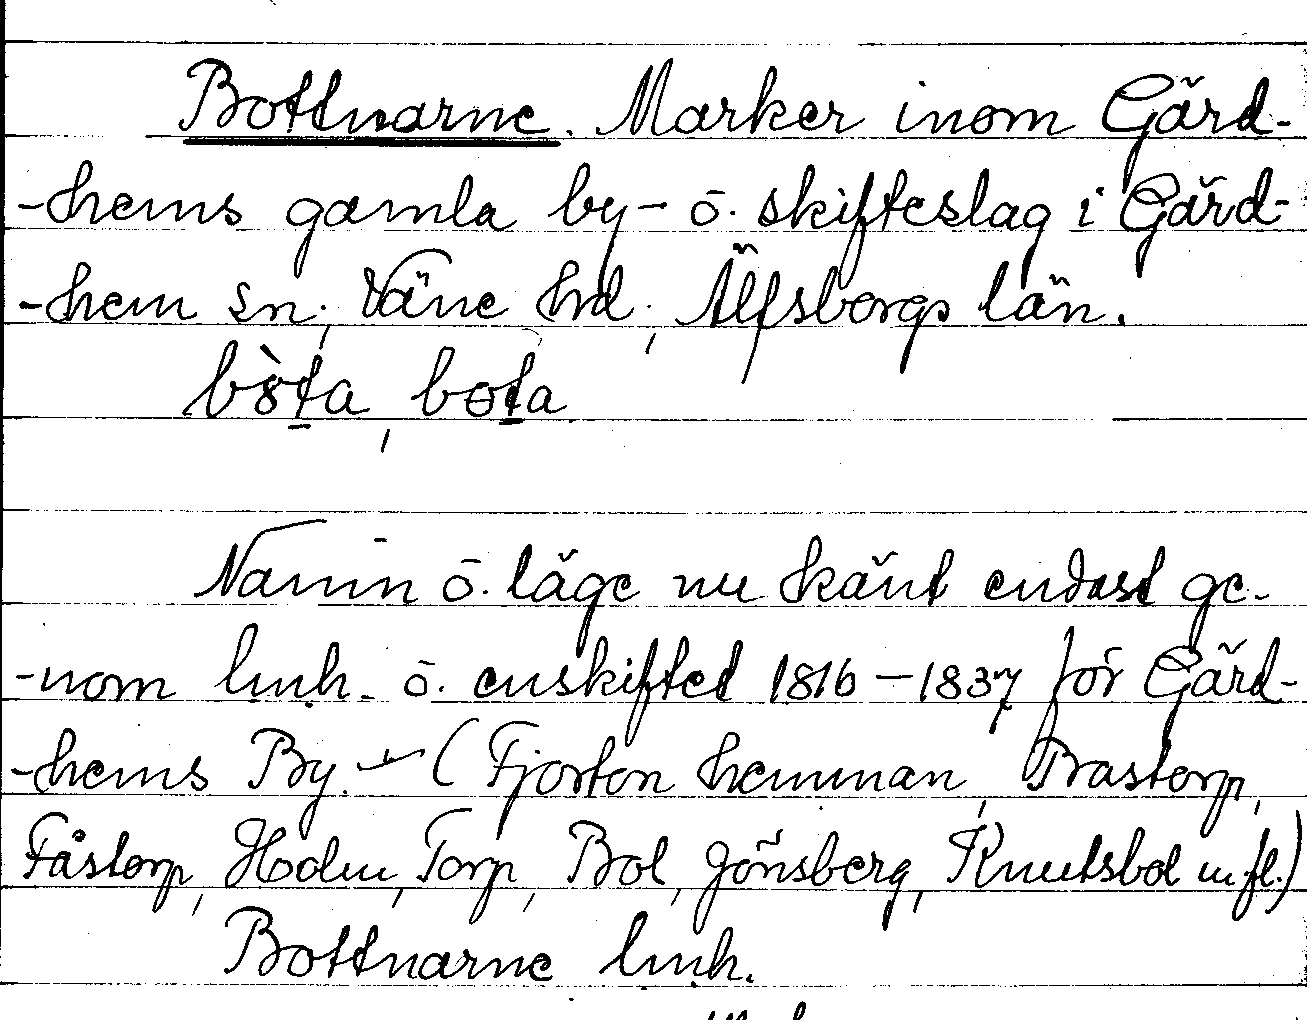 Bottnarne. Marker inom Gärd-
-hems gamla by- o. skifteslag i Gärd-
-hem sn, Väne hd, Älfsborgs län.
Namn o. läge nu känt endast ge-
-nom lmh. o. enskiftet 1816-1837 för Gärd-
-hems By. - (Fjorton hemman, Prastorp,
Fåstorp, Hoolm, Torp, Bol, Jönsberg, Knutsbol m.fl.)
Bottnarne lmh.